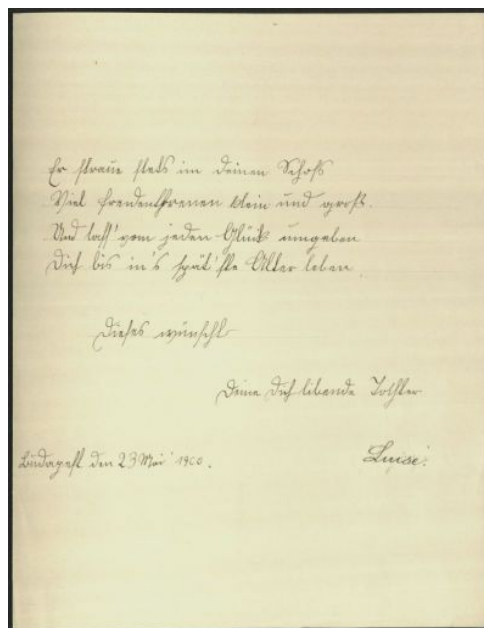 Er straue stets im deinen Schoß
Viel Freudenthrenen klein und groß.
Und lass' vom jeden Glück umgeben
Dich bis in's spät'ste Alter leben.
Dieses wünscht
Deine Dich libende Tochter
Budapest den 23 Mai 1900.
Luise.